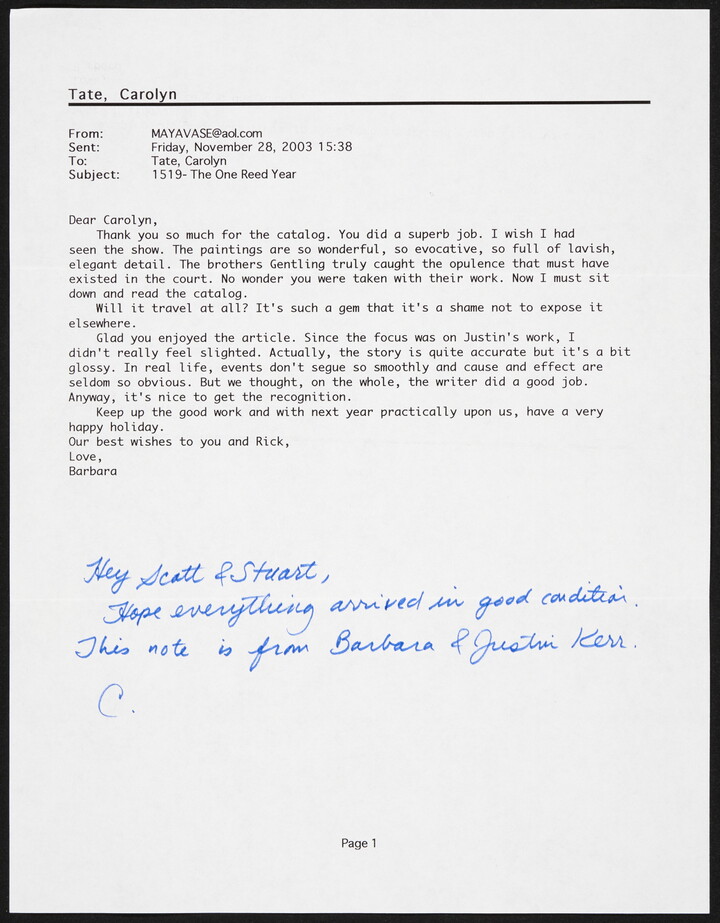 Tate, Carolyn
From: MAYAVASE@aol.com
Sent: Friday, November 28, 2003 15:38
To: Tate, Carolyn
Subject: 1519- The One Reed Year
Dear Carolyn,
Thank you so much for the catalog. You did a superb job. I wish I had
seen the show. The paintings are so wonderful, so evocative, so full of lavish,
elegant detail. The brothers Gentling truly caught the opulence that must have
existed in the court. No wonder you were taken with their work. Now I must sit
down and read the catalog.
Will it travel at all? It's such a gem that it's a shame not to expose it
elsewhere.
Glad you enjoyed the article. Since the focus was on Justin's work, I
didn't really feel slighted. Actually, the story is quite accurate but it's a bit
glossy. In real life, events don't segue so smoothly and cause and effect are
seldom so obvious. But we thought, on the whole, the writer did a good job.
Anyway, it's nice to get the recognition.
Keep up the good work and with next year practically upon us, have a very
happy holiday.
Our best wishes to you and Rick,
Love,
Barbara
Hey Scott & Stuart,
Hope everything arrived in good condition.
This note is from Barbara & Justin Kerr.
C.
Page 1